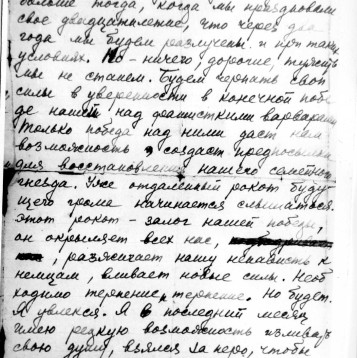 больше тогда, когда мы праздновали
свое двадцатилетие, что через два
года мы будем разлучены и при таких
условиях. Но - ничего дорогие, тужить
мы не станем. Будем черпать свои
силы в уверенности в конечной побе-
де нашей над фашисткими варварами.
Только победа над ними даст нам
возможность и создаст предпосылки
для восстановления нашего семейного
гнезда. Уже отдаленный рокот буду-
щего грома начинается слышаться.
Этот рокот - залог нашей победы,
он окрыляет всех нас,
, разжигает нашу ненависть к
немцам, вливает новые силы. Необ-
ходимо терпение, терпение. Но будет.
Я увлекся. Я в последний месяц
имею редкую возможность изливать
свою душу, взялся за перо, чтобы